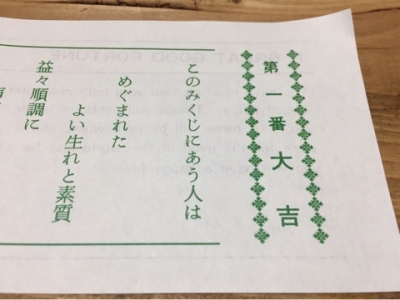 第一番大吉
このみくじにあう人は
めぐまれた
よい生れと素質
益々順調に